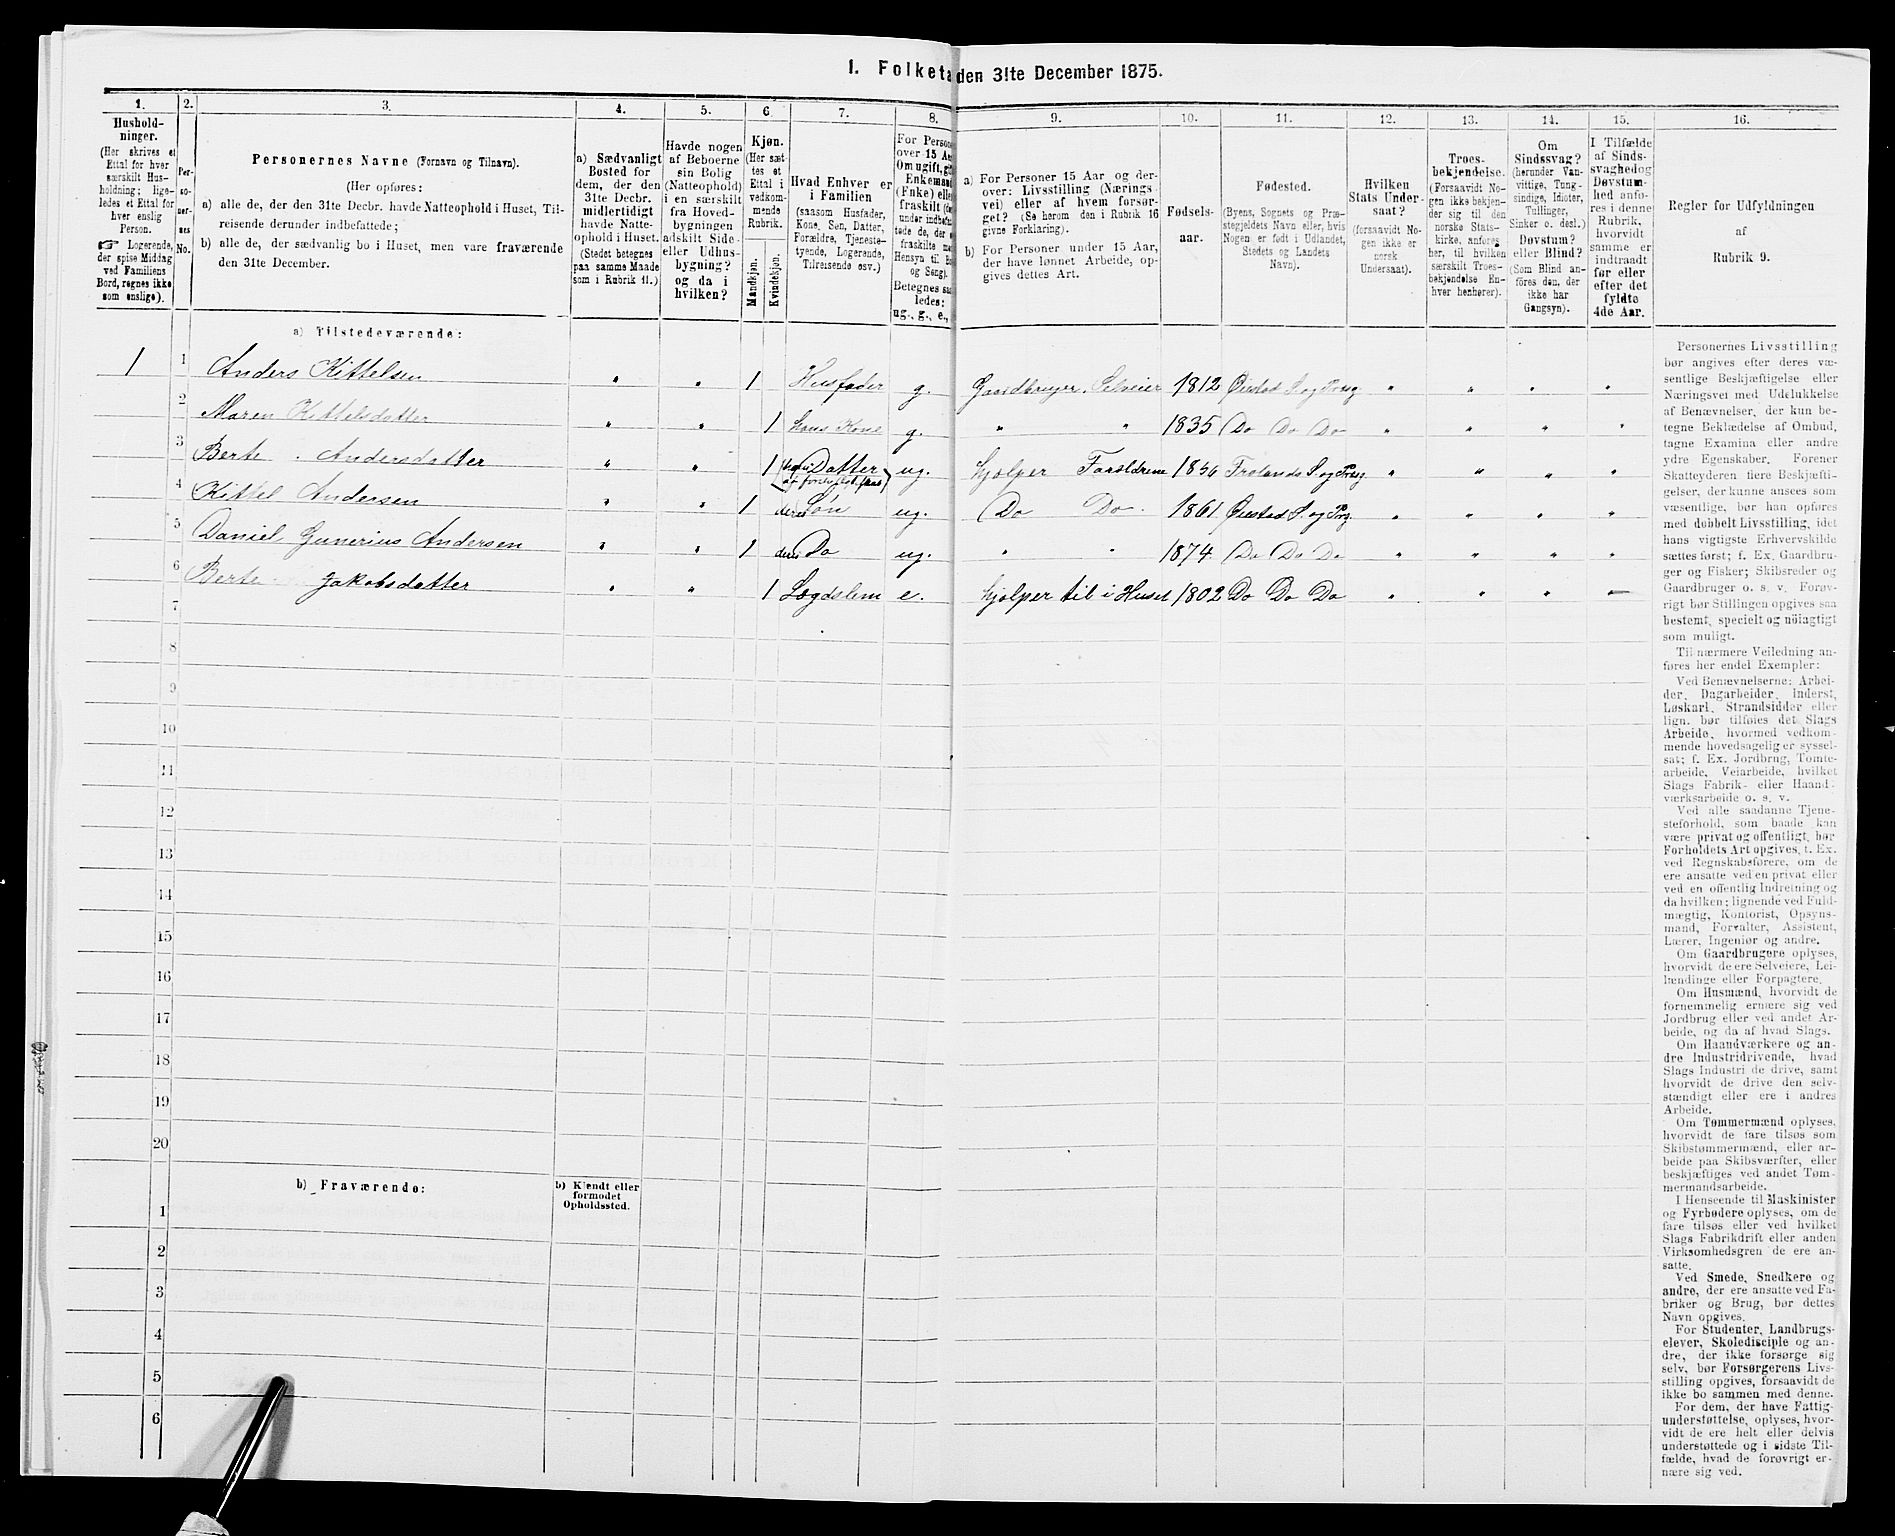 I. Folketæ
den 31te December 1875.
1.
2.
3.
4.
5.
6.
7.
8.
9.
10.
11.
12.
13.
14.
15.
16.
Hushold-
ninger.
(Her skrives et
Ettal for hver
særskilt Hus-
holdning; lige-
ledes et Ettal for
hver enslig
Person.
☞ Logerende,
der spise Middag
ved Familiens
Bord, regnes ikke
som enslige).
Per-
so-
ner-
nes
No.
Personernes Navne (Fornavn og Tilnavn).
(Her opføres:
a) alle de, der den 31te Decbr. havde Natteophold i Huset, Til-
reisende derunder indbefattede;
b) alle de, der sædvanlig bo i Huset, men vare fraværende
den 31te December.
a) Sædvanligt
Bosted for
dem, der den
31te Decbr.
midlertidigt
havde Natte-
ophold i Huset.
(Stedet betegnes
paa samme Maade
som i Rubrik 11.)
Havde nogen
af Beboerne
sin Bolig
(Natteophold)
i en særskilt
fra Hoved-
bygningen
adskilt Side-
eller Udhus-
bygning?
og da i
hvilken?
Kjøn.
(Her sæt-
tes et
Ettal i
vedkom-
mende
Rubrik.
Mandskjøn.
Kvindekjøn.
Hvad Enhver er
i Familien
(saasom Husfader,
Kone, Søn, Datter,
Forældre, Tjeneste-
tyende, Logerende,
Tilreisende osv.)
For Persone
over 15 Aa
Om ugift, gif
Enkemand
(Fnke) elle
fraskilt (fra
under indbefa
tede de, der e
fraskilte me
Hensyn til Bo
og Seng).
Betegnes saa
ledes:
ug., g., e.,
a) For Personer 15 Aar og der-
over: Livsstilling (Nærings-
vei) eller af hvem forsør-
get? (Se herom den i Rubrik 16
givne Forklaring).
b) For Personer under 15 Aar,
der have lønnet Arbeide, op-
gives dettes Art.
Fødsels-
aar.
Fødested.
(Byens, Sognets og Præ-
stegjeldets Navn eller, hvis
Nogen er født i Udlandet,
Stedets og Landets
Navn).
Hvilken
Stats Under-
saat?
(forsaavidt No-
gen ikke er
norsk
Undersaat).
Troes-
bekjendelse.
(Forsaavidt No-
gen ikke bekjen-
der sig til den
norske Stats-
kirke, anføres
her, til hvilken
særskilt Troes-
bekjendelse En-
hver henhører).
Om
Sindssvag?
(herunder Van-
vittige, Tung-
sindige, Idioter,
Tullinger,
Sinker o. desl.)
Døvstum?
eller Blind?
(Som Blind an-
føres den, der
ikke har
Gangsyn).
I Tilfælde
af Sinds-
svaghed og
Døvstum-
hed anfø-
res i denne
Rubrik,
hvorvidt
samme er
indtraadt
før eller
efter det
fyldte
4de Aar.
Regler for Udfyldningen
af
Rubrik 9.
a) Tilstedeværende:
1 1 Anders Kittelsen " " 1 Husfader g. Gaardbruger, Selveier 1812 Øiestad S. og Præg " " " "
2 Maren Kittelsdatter " " 1 hans Kone g. " " 1835 Do Do Do " " " "
3 Berte Andersdatter " " 1 Datter ug. hjælper Forældrene 1856 Frolands S. og Præg. " " " "
4 Kittel Andersen " " 1 deres Søn ug. Do Do 1861 Øiestad S. og Prg. " " " "
5 Daniel Gunerius Andersen " " 1 deres Do ug. " " 1874 Do Do Do " " " "
6 Berte Jakobsdatter " " 1 Lægdslem e. hjælper til i Huset 1802 Do Do Do " " " "
7
8
9
10
11
12
13
14
15
16
17
18
19
20
b) Fraværende:
b) Kjendt eller
formodet
Opholdssted.
1
2
3
4
5
6
Personernes Livsstilling
bør angives efter deres væ-
sentlige Beskjæftigelse eller
Næringsvei med Udelukkelse
af Benævnelser, der kun be-
tegne Beklædelse af Ombud,
tagne Examina eller andre
ydre Egenskaber. Forener
Skatteyderen flere Beskjæfti-
gelser, der kunne ansees som
væsentlige, bør han opføres
med dobbelt Livsstilling, idet
hans vigtigste Erhvervskilde
sættes først; f. Ex. Gaardbru-
ger og Fisker; Skibsreder og
Gaardbruger o. s. v. Forøv-
rigt bør Stillingen opgives saa
bestemt, specielt og nöiagtigt
som muligt.
Til nærmere Veiledning an-
føres her endel Exempler:
Ved Benævnelserne: Arbei-
der, Dagarbeider, Inderst,
Løskarl, Strandsidder eller
lign. bør tilføies det Slags
Arbeide, hvormed vedkom-
mende hovedsagelig er syssel-
sat; f. Ex. Jordbrug, Tomte-
arbeide, Veiarbeide, hvilket
Slags Fabrik- eller Haand-
værksarbeide o. s. v.
Ved alle saadanne Tjene-
steforhold, som baade kan
være privat og offentligt, bør
Forholdets Art opgives, f. Ex.
ved Regnskabsførere, om de
ere ansatte ved en privat eller
ved en offentlig Indretning og
da hvilken; lignende ved Fuld-
mægtig, Kontorist, Opsyns-
mand, Forvalter, Assistent,
Lærer, Ingeniør og andre.
Om Gaardbrugere oplyses,
hvorvidt de ere Selveiere, Lei-
lændinge eller Forpagtere.
Om Husmænd, hvorvidt de
fornemmelig ernære sig ved
Jordbrug eller ved andet Ar-
beide, og da af hvad Slags.
Om Haandværkere og an-
dre Industridrivende, hvad
Slags Industri de drive, samt
hvorvidt de drive den selv-
stændigt eller ere i andres
Arbeide.
Om Tømmermænd oplyses,
hvorvidt de fare tilsøs som
Skibstømmermænd, eller ar-
beide paa Skibsværfter, eller
beskjæftiges ved andet Tøm-
mermandsarbeide.
I Henseende til Maskinister
og Fyrbødere oplyses, om de
fare tilsøs eller ved hvilket
Slags Fabrikdrift eller anden
Virksomhedsgren de ere an-
satte.
Ved Smede, Snedkere og
andre, der ere ansatte ved Fa-
briker og Brug, bør dettes
Navn opgives.
For Studenter, Landbrugs-
elever, Skoledisciple og an-
dre, der ikke forsørge sig
selv, bør Forsørgerens Livs-
stilling opgives, forsaavidt de
ikke bo sammen med denne.
For dem, der have Fattig-
understøttelse, oplyses, hvor-
vidt de ere helt eller delvis
understøttede og i sidste Til-
fælde, hvad de forøvrigt er-
nære sig ved.